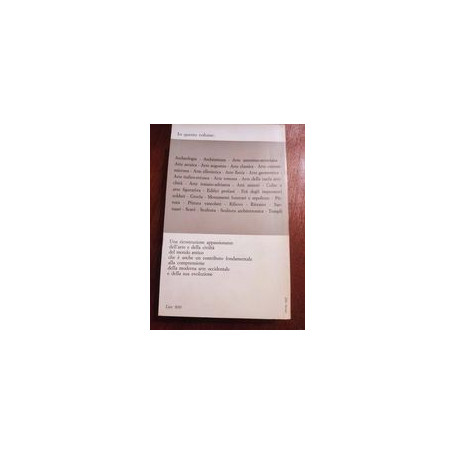 In questo volume:
Archeologia - Architettura - Arte
Arte arcaica - Arte augustea - Arte classica - Arte
Arte ellenistica - Arte flavia - Arte geometrica -
Arte italico-etrusca - Arte romana - Arte della tarda
Arte traiano-adrianea - Arti minori - Culto e
arte figurativa - Edifici profani - Età degli imperatori
soldati - Grecia - Monumenti funerari e sepolcri -
Pittura vascolare - Rilievo - Ritratto -
Scavi - Scultura - Scultura architettonica - Templi
Una ricostruzione appassionante
dell'arte e della civiltà
del mondo antico
che è anche un contributo fondamentale
alla comprensione
della moderna arte occidentale
e della sua evoluzione
Lire